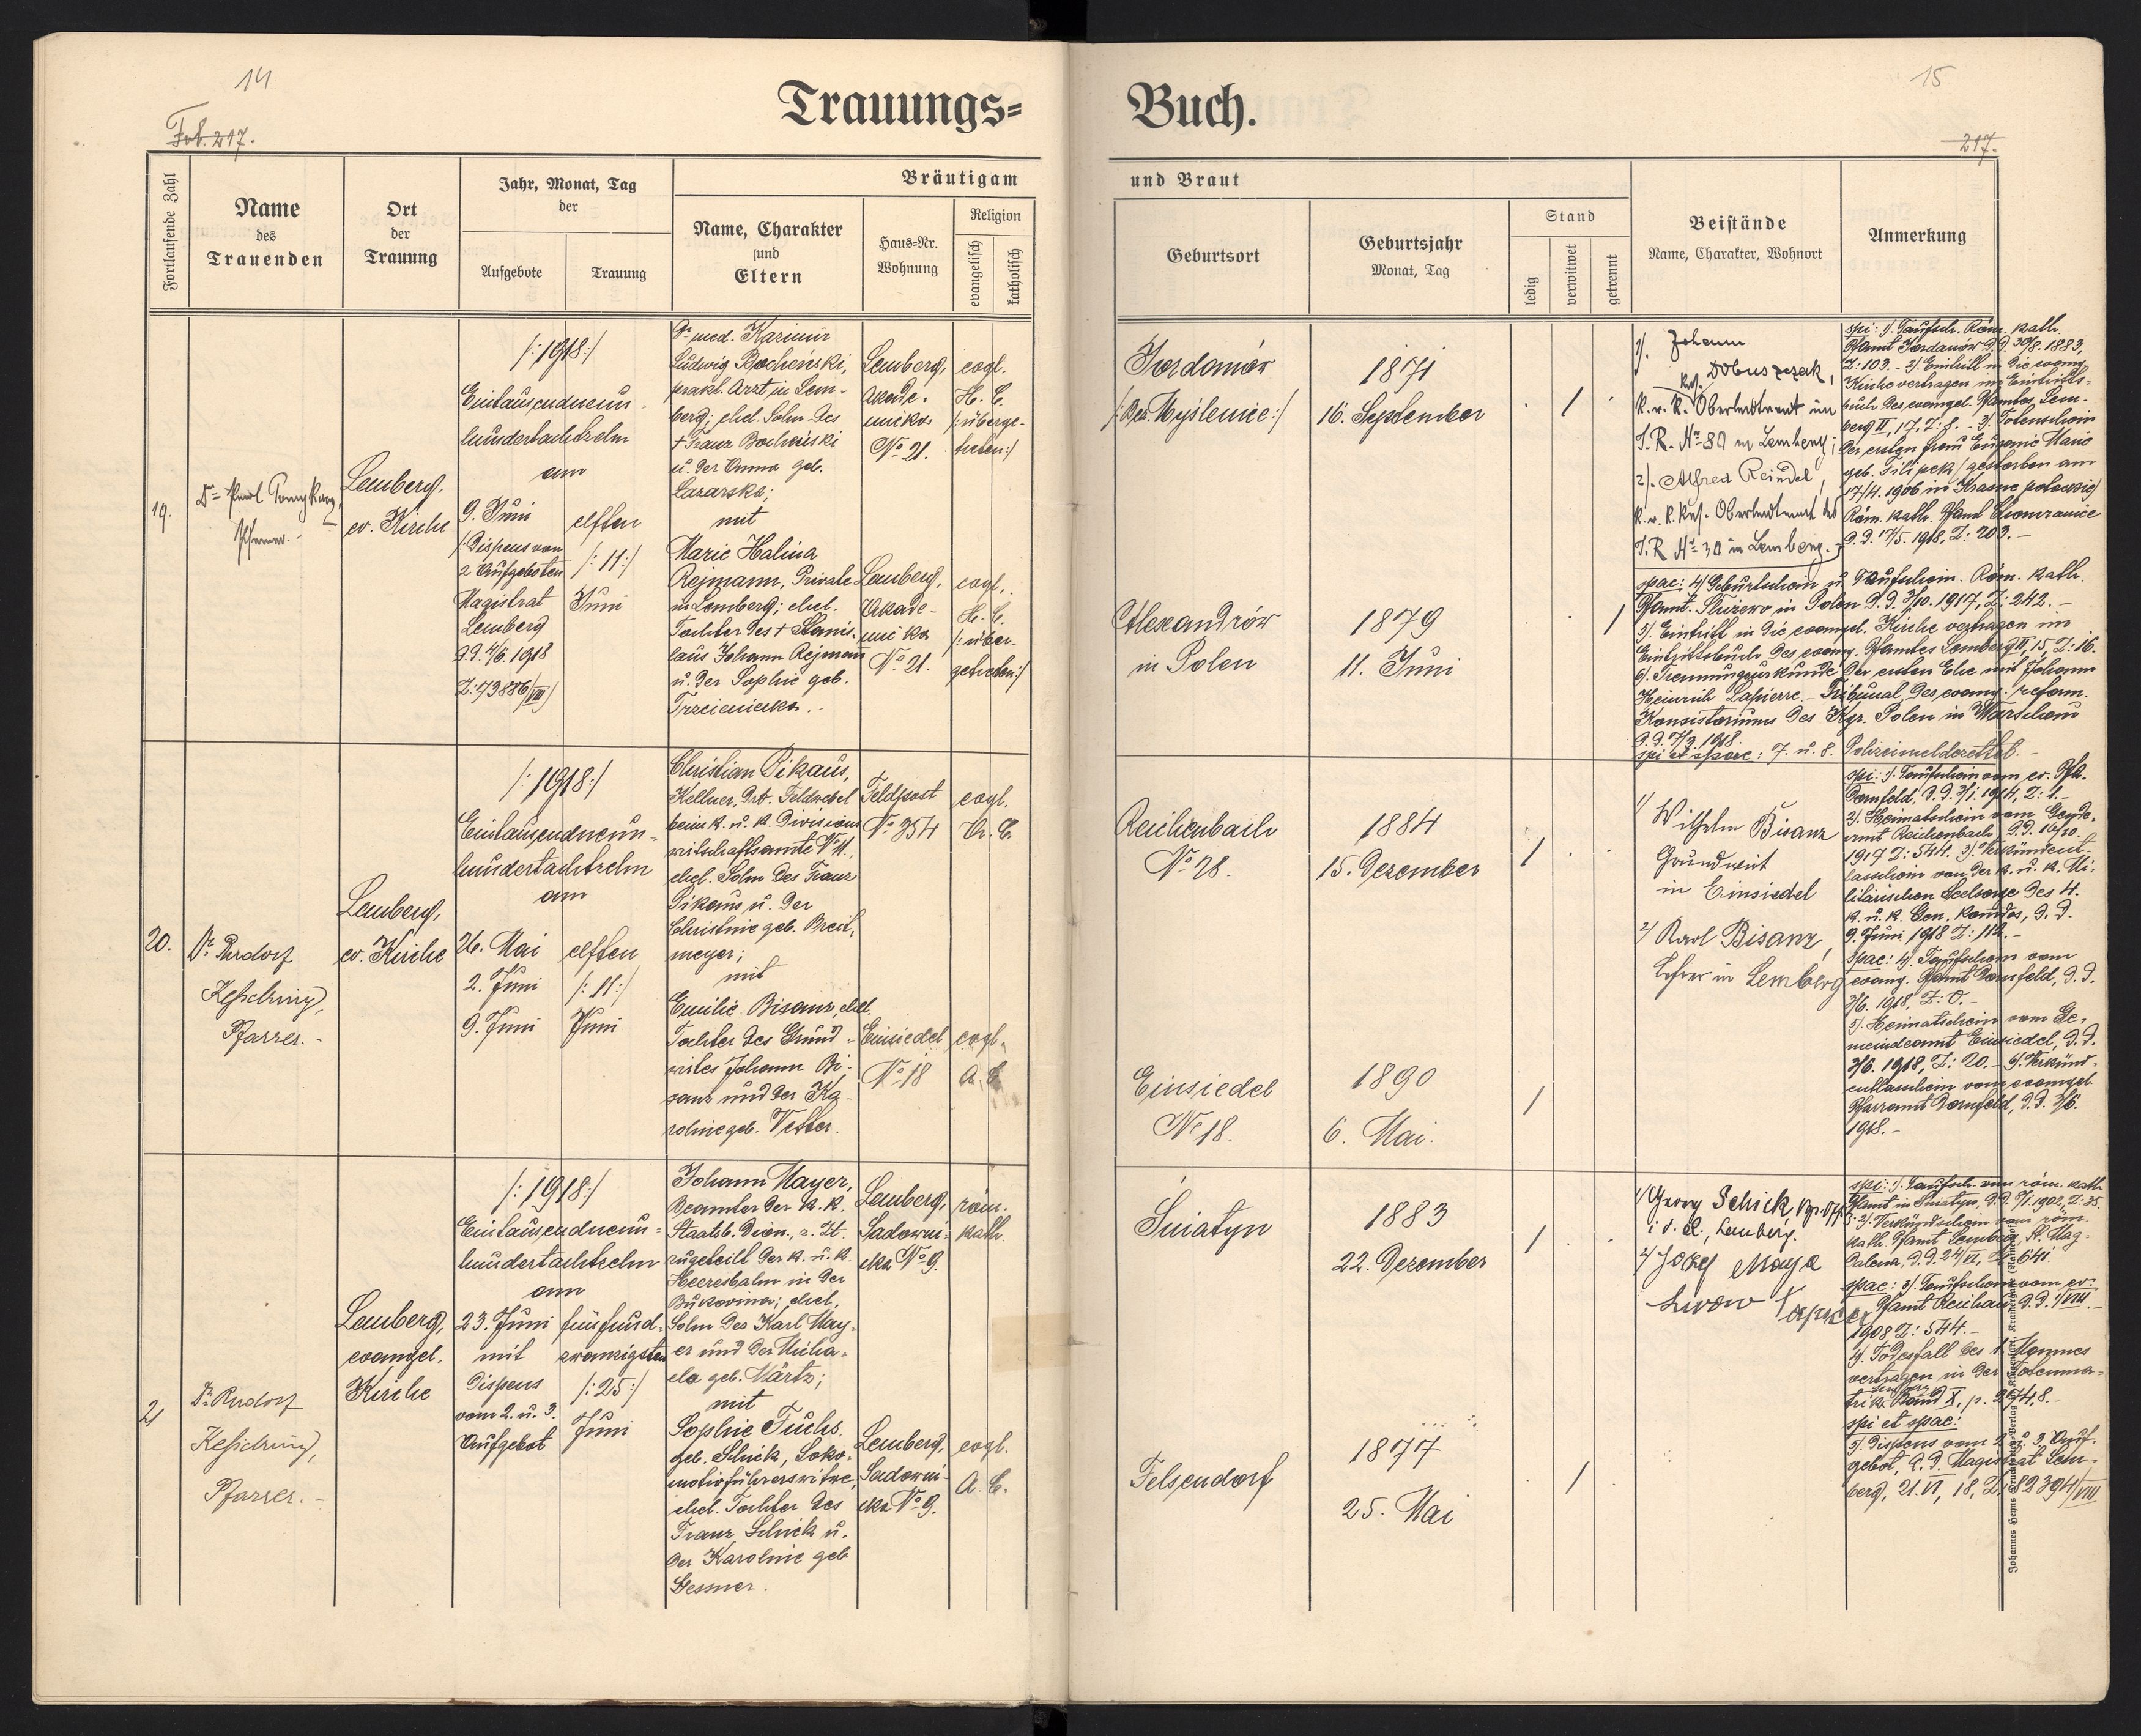 14
Fol. 217.
Trauungs=
Fortlaufende Zahl
Name
des
Trauenden
Ort
der
Trauung
Jahr, Monat, Tag
der
Aufgebote
Trauung
Bräutigam
Name, Charakter
und
Eltern
Haus-Nr.
Wohnung
Religion
evangelisch
katholisch
19.
Lemberg,
ev. Kirche
/:1918:/
Eintausendneun-
hundertachtzehn
am
9. Juni
/:Dispens von
2 Aufgeboten
Magistrat
Lemberg
d.d. 4/6. 1918
Z: 73886/VIII/
elften
/:11:/
Juni
Dr med. Kazimir
Ludwig Bochenski,
prakt. Arzt in Lem-
berg; ehel. Sohn des
+ Franz Bochenski
u. der Anna geb.
Lazarska;
mit
Marie Halina
Rejmann, Private
in Lemberg; ehel.
Tochter des + Stanis-
laus Johann Rejmann
u. der Sophie geb.
Trzcieniecka.-
Lemberg,
Akade-
micka
No 21.
Lemberg,
Akade-
micka
No 21.
evgl.
H. C.
/:überge-
treten:/
evgl.
H. C.
/:über-
getreten:/
20.
Dr Rudolf
Kesselring,
Pfarrer.-
Lemberg,
ev. Kirche
/:1918:/
Eintausendneun-
hundertachtzehn
am
26. Mai
2. Juni
9. Juni
elften
/:11:/
Juni
Christian Pikaus,
Kellner, Feldwebel
beim k. u. k. Divisions
wirtschaftsamte No 11.,
ehel. Sohn des Franz
Pikaus u. der
Christine geb. Breit-
meyer;
mit
Emilie Bisanz, ehel.
Tochter des Grund-
wirtes Johann Bi-
sanz und der Ka-
roline geb. Vetter.
Feldpost
No 354
Einsiedel
No 18
evgl.
A. C.
evgl.
A. C.
21
Dr Rudolf
Kesselring,
Pfarrer.-
Lemberg,
evangel.
Kirche
/:1918:/
Eintausendneun-
hundertachtzehn
am
23. Juni
mit
Dispens
vom 2. u. 3.
Aufgebot
fünfund-
zwanzigsten
/:25:/
Juni
Johann Mayer,
Beamter der k. k.
Staatsb. Dion., z. Zt.
zugeteilt der k. u. k.
Heeresbahn in der
Bukowina; ehel.
Sohn des Karl May-
er und der Micha-
ela geb. Märtz;
mit
Sophie Fuchs
geb. Schick, Loko-
motivführerswitwe,
ehel. Tochter des
Franz Schick u.
der Karoline geb
Gessner.
Lemberg,
Sadowni-
cka No 9.
Lemberg,
Sadowni-
cka No 9.
röm.
kath.
evgl.
A. C.
15
217.
Buch.
und Braut
Geburtsort
Geburtsjahr
Monat, Tag
Stand
ledig
verwitwet
getrennt
Beistände
Name, Charakter, Wohnort
Anmerkung
Jordanów
/:Bez. Myślenice:/
1871
16. September
Alexandrów
in Polen
1879
11. Juni
1). Johann
Dobuszczak,
k. u. k. Oberleutnant im
I.R. No 80 in Lemberg;
2). Alfred Reindel,
k. u. k. Res. Oberleutnant des
I.R No 30 in Lemberg.
spi: 1). Taufsch. Röm. kath.
Pfamt Jordanów d.d. 30/8. 1883,
Z: 103.- 2) Eintritt in die evang.
Kirche vertragen im Eintritts-
buch des evangel. Pfamtes Lem-
berg II, 17, Z: 8.- 3) Totenschein
der ersten Frau Eugenie Marie
geb. Filipek /gestorben am
17/4. 1906 in Krasne potockie/
Röm. kath. Pfamt Chomranice
d.d. 17/5. 1918, Z: 203.-
spae: 4) Geburtschein u. Taufschein. Röm. kath.
Pfamt. Służewo in Polen d.d. 3/10. 1917, Z: 242.-
5). Eintritt in die evangel. Kirche vertragen im
Eintrittsbuch des evang. Pfamtes Lemberg II, 15, Z: 16.
6). Trennungsurkunde der ersten Ehe mit Johann
Heinrich Lapierre - Tribunal des evang. reform.
Konsistoriums des Kgr. Polen in Warschau
spi et spae: 7. u. 8. Polizeimeldezettel.-
Reichenbach
No 28.
1884
15. Dezember
Einsiedel
No 18.
1890
6. Mai.
1) Wilhelm Bisanz
Grundwirt
in Einsiedel
2) Karl Bisanz,
Lehrer in Lemberg
spi: 1). Taufschein vom ev. Pfa.
Dornfeld, d.d. 3/1. 1914, Z: 1.-
2). Heimatschein vom Gemde-
amt Reichenbach, d.d. 16/10.
1917 Z: 544. 3). Verkündent-
lasschein von der k. u. k. Mi-
litärischen Seelsorge des 4.
k. u. k. Gen. Komdos, d.d.
9. Juni 1918 Z: 112.-
spae: 4). Taufschein vom
evang. Pfamt Dornfeld, d.d.
3/6. 1918, Z: 0.-
5). Heimatschein vom Ge-
meindeamt Einsiedel, d.d.
3/6. 1918, Z: 20.- 6). Verkünd-
entlasschein vom evangel
Pfarramt Dornfeld, d.d. 3/6.
1918.-
Śniatyn
1883
22. Dezember
Felsendorf
1877
25. Mai
1) Georg Schick,
Lemberg.
2) Josef Maya
Lwow
spi: 1). Taufsch. vom röm. kath
Pfamt in Śniatyn,
2). Verkündschein vom röm.
kath. Pfamt Lemberg, St. Mag-
dalena, d.d. 24/VI, Z: 641.
spae: 3). Taufschein vom ev.
Pfamt Reichau d.d. 1/VIII.
1908 Z: 544.-
4). Todesfall des 1. Mannes
vertragen in der Totenma-
trik Band X, p. 274, 8.-
spi et spae:
5). Dispens vom 2. u. 3. Auf-
gebot, d.d. Magistrat Lem-
berg, 21. VI, 18, Z: 82394/VIII